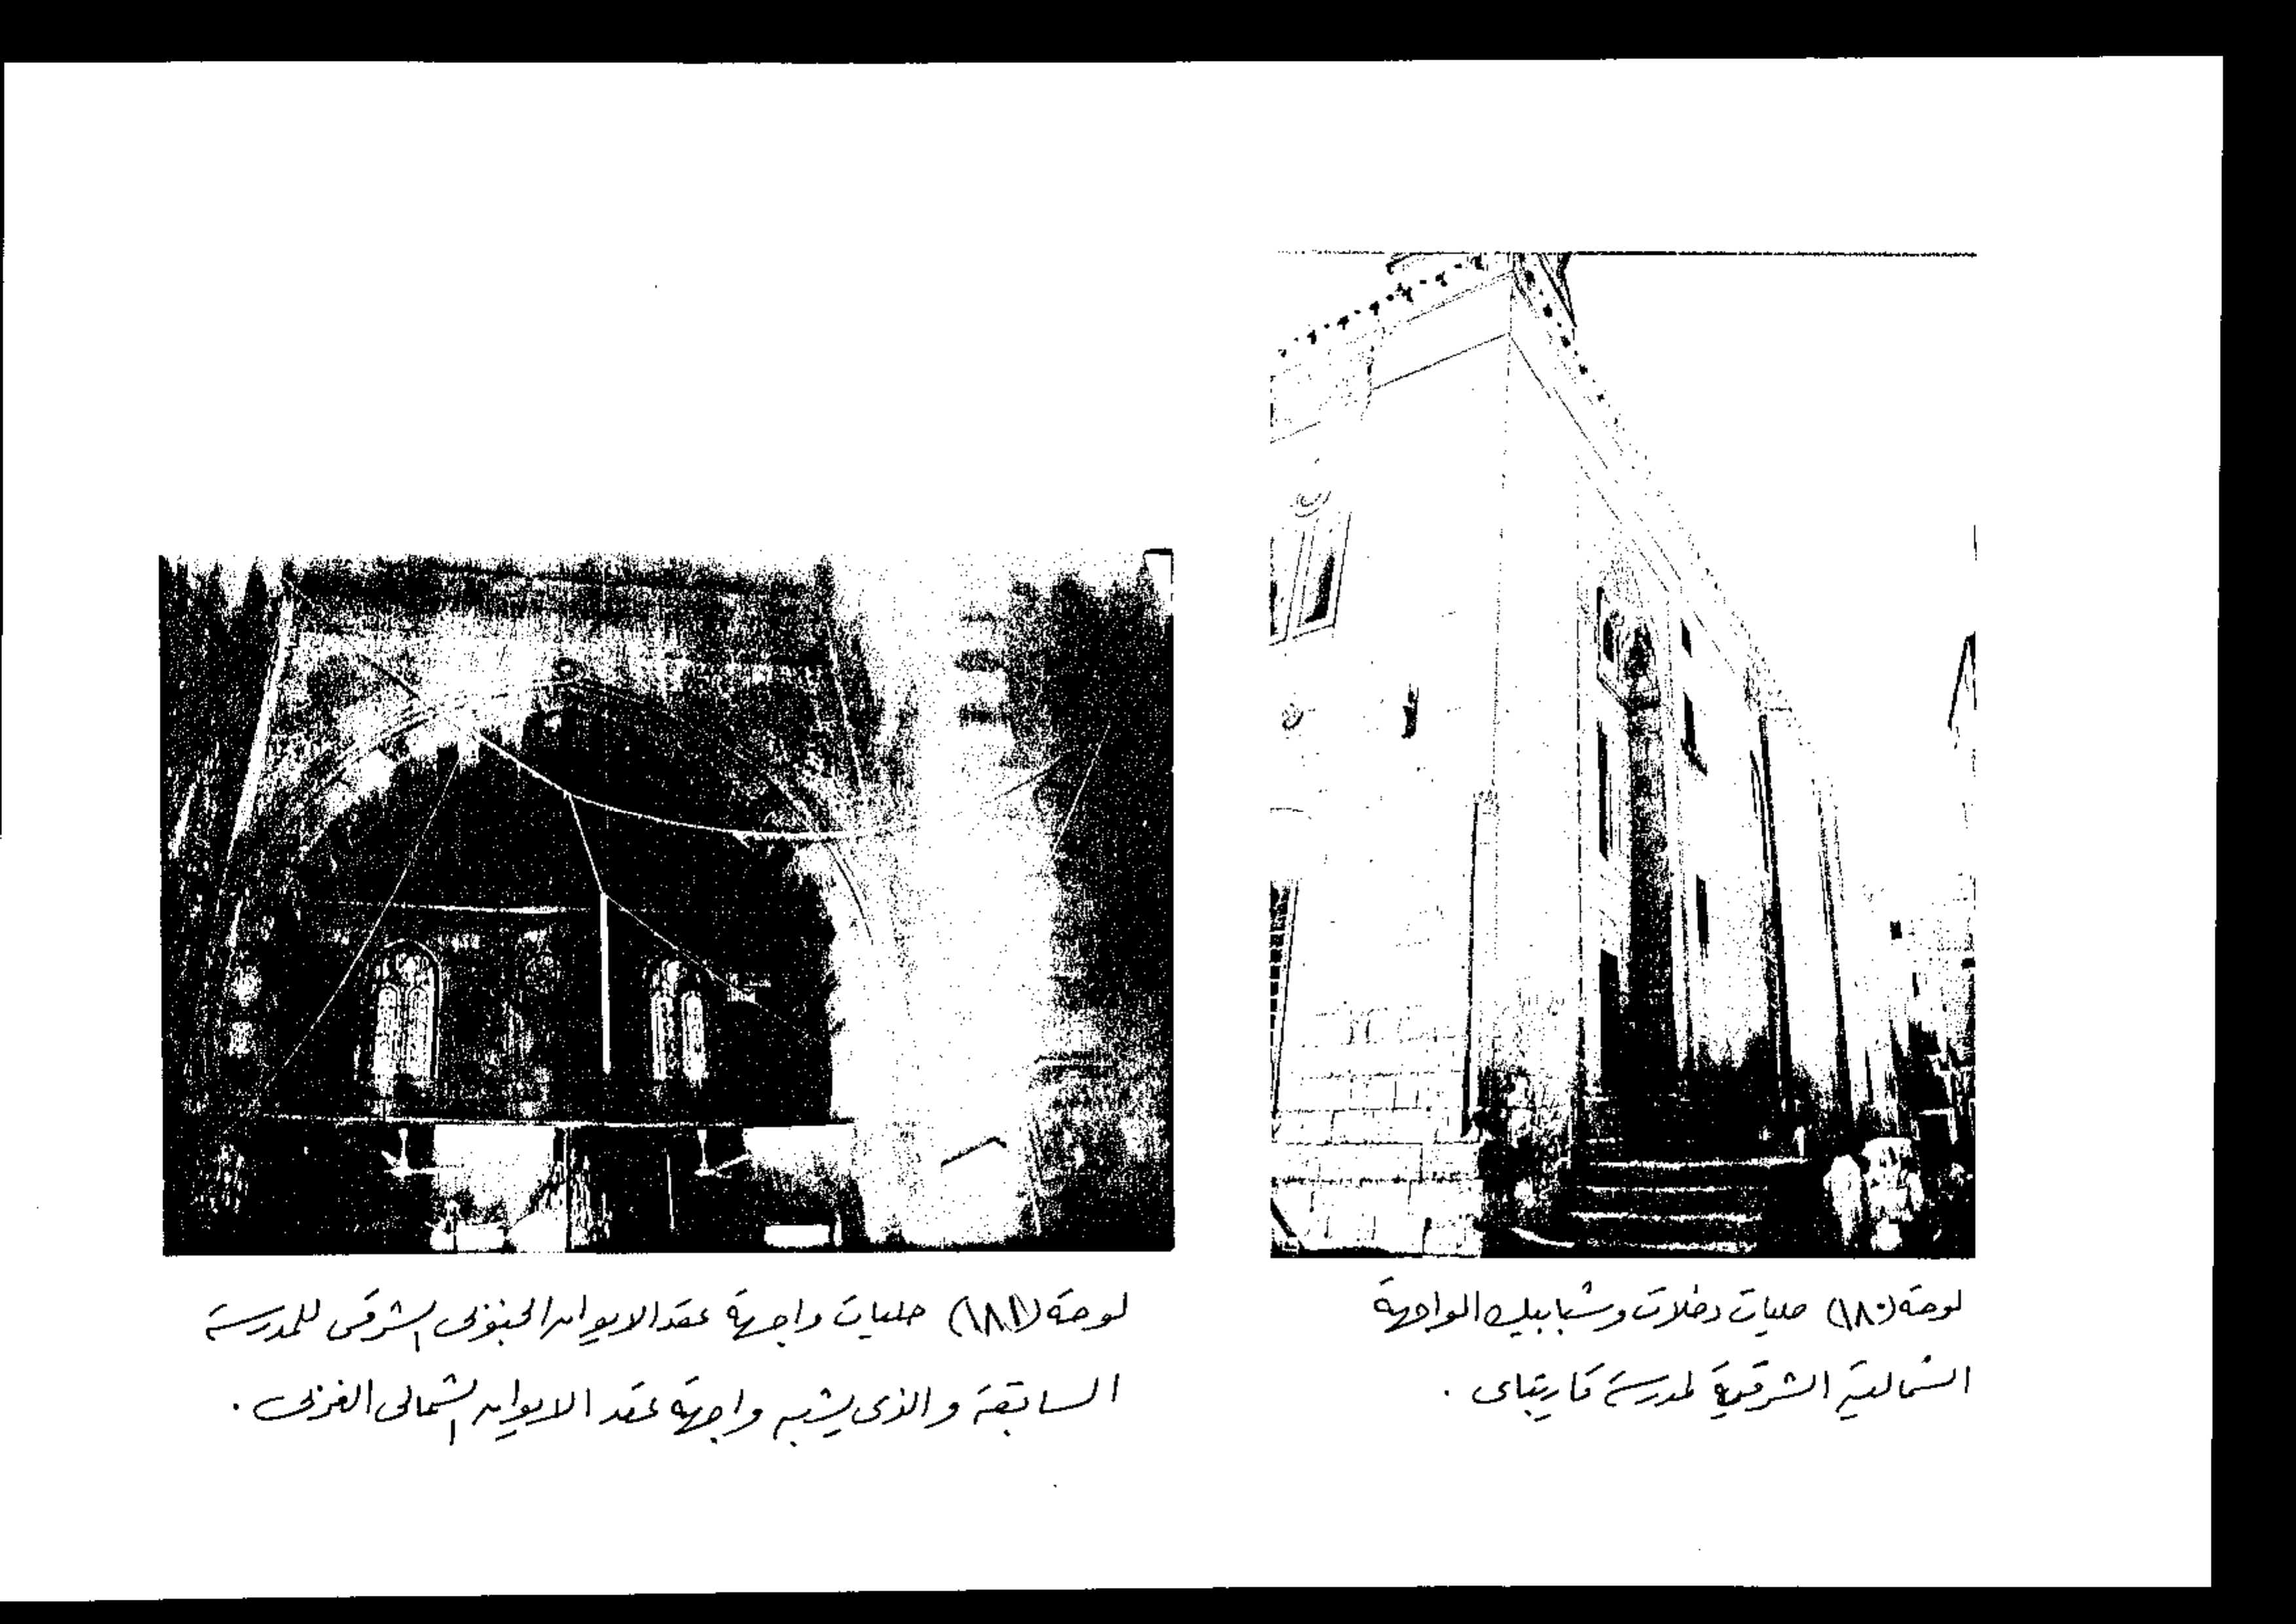 لوحة (١٨٠) حليات دخلات وشبابيك الواجهة
الشمالية الشرقية لمدرسة قايتباى .
لوحة (١٨١) حليات واجهة عقد الايوان الجنوبى الشرقى للمدرسة
السابقة والذى يشبه واجهة عقد الايوان الشمالى الغربى .